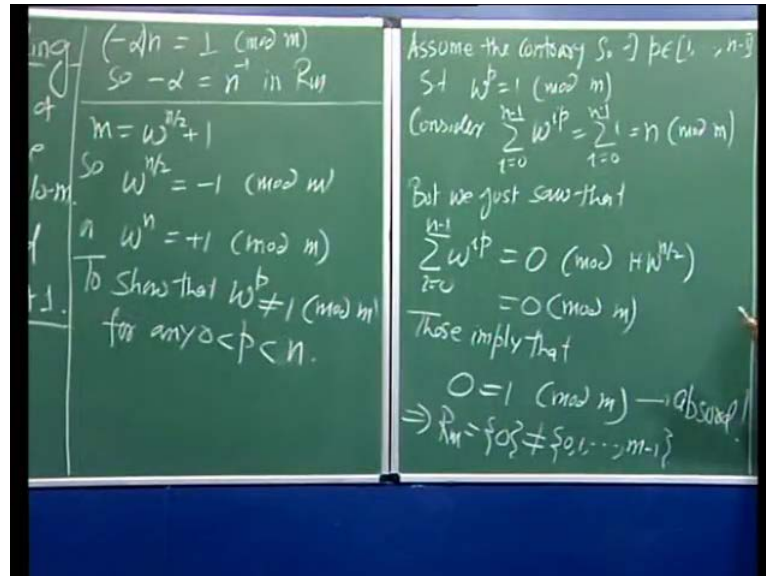 ing
of
e
lo-m.
d
+1.
(-α)n = 1 (mod m)
So -α = n⁻¹ in Rm
m = ω^{n/2} + 1
So ω^{n/2} = -1 (mod m)
ω^n = +1 (mod m)
To show that ω^p ≠ 1 (mod m)
for any 0 < p < n.
Assume the contrary So ∃ p ∈ [1, , n-1]
St ω^p = 1 (mod m)
Consider ∑_{i=0}^{n-1} ω^{ip} = ∑_{i=0}^{n-1} 1 = n (mod m)
But we just saw that
∑_{i=0}^{n-1} ω^{ip} = 0 (mod 1+ω^{n/2})
= 0 (mod m)
Those imply that
0 = 1 (mod m) → absurd!
⇒ Rm = {0} ≠ {0,1,...,m-1}